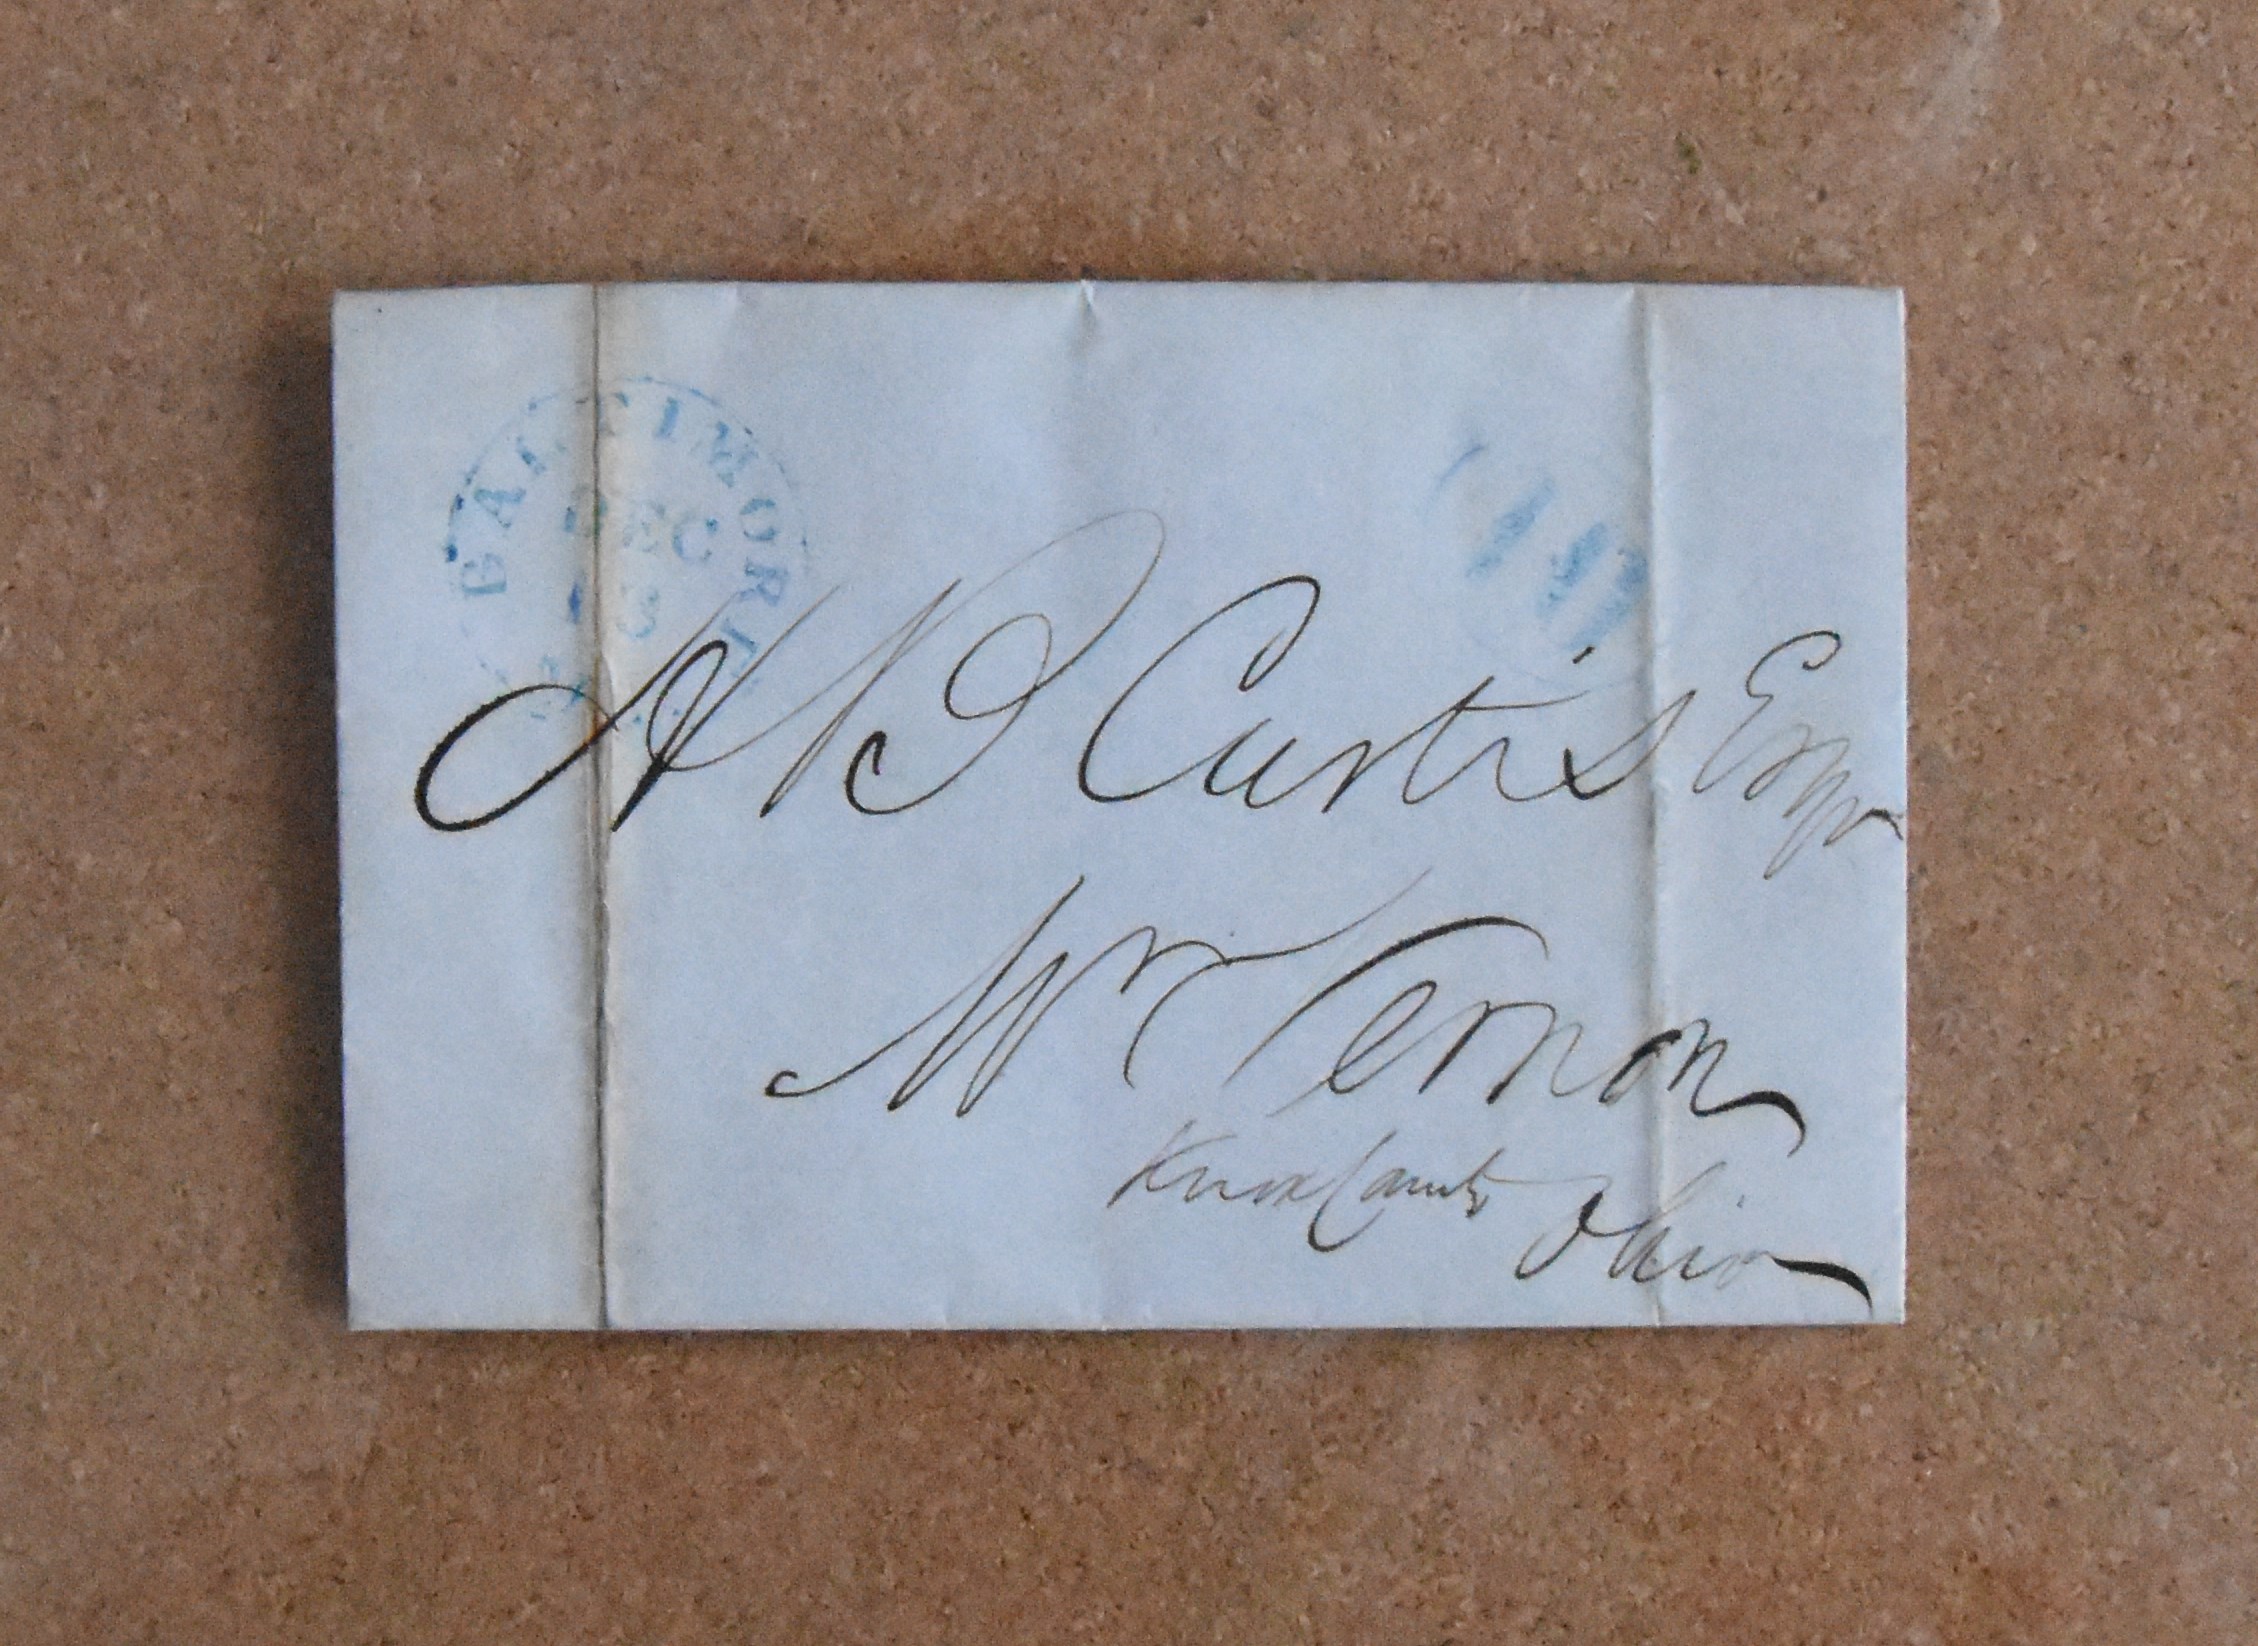 BALTIMORE
DEC
10
H B Curtis Esqr
Mt Vernon
Knox County
Ohio